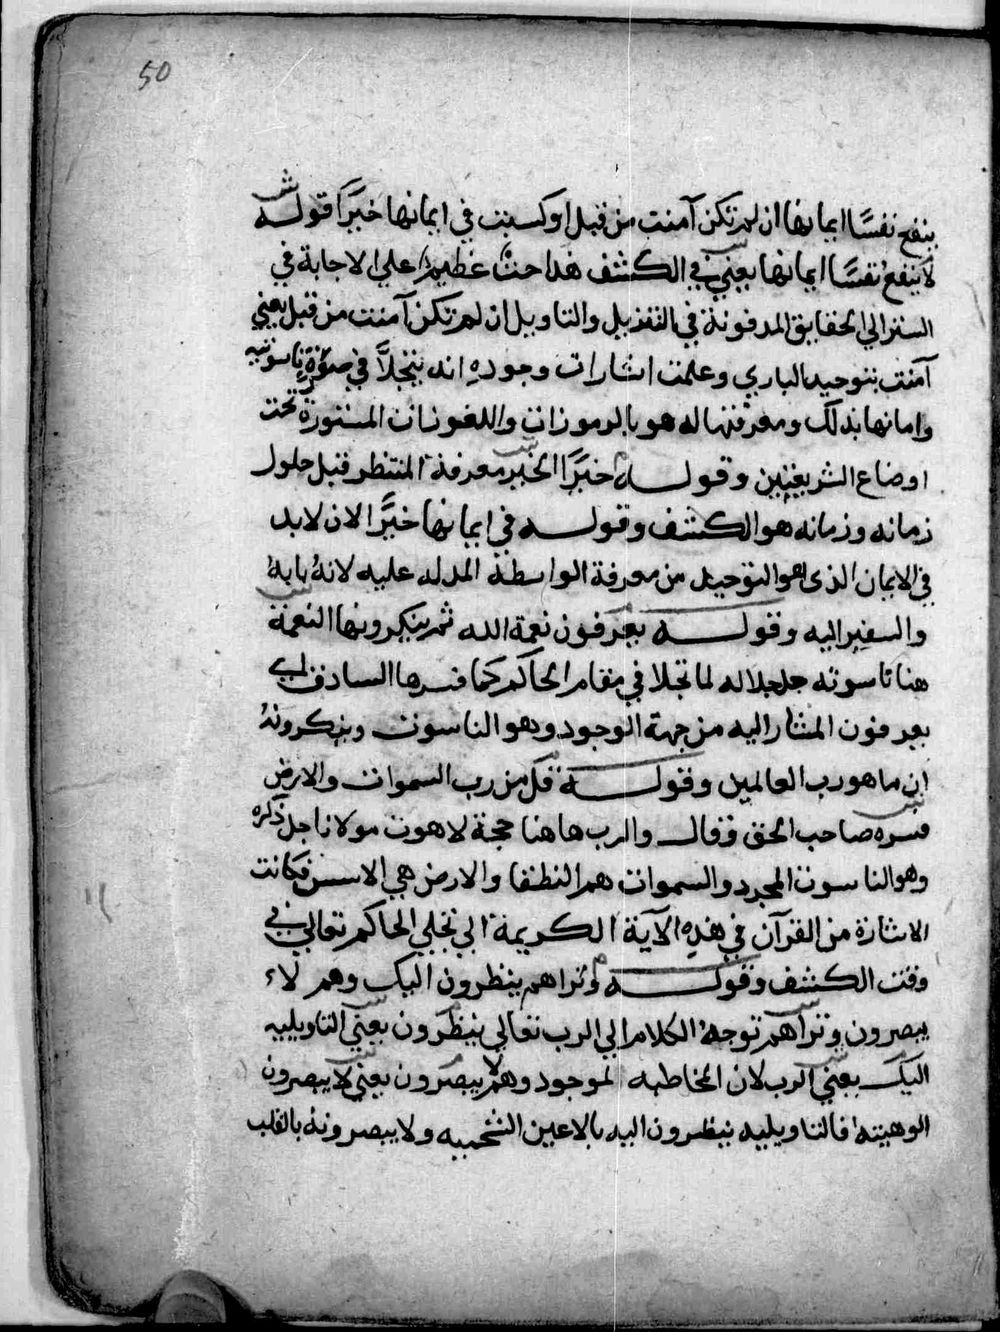 50
ينفع نفسًا ايمانها ان لم تكن آمنت من قبل او كسبت في ايمانها خيرًا قوله
لا ينفع نفسًا ايمانها يعني في الكشف هذا حثٌ عظيم على الاجابة في
الستر الي الحقايق المدفونة في التنزيل والتاويل ان لم تكن آمنت من قبل يعني
آمنت بتوحيد الباري وعلمت اشارات وجوده انه يتجلاَّ في صورةٍ ناسوتيه
وامانها بذلك ومعرفتها له هو بالرموزات واللغوزات المستورة تحت
اوضاع الشريعتين وقوله خيرًا الخير معرفة المنتظر قبل حلول
زمانه وزمانه هو الكشف وقوله في ايمانها خيرًا الان لابد
في الايمان الذي هو التوحيد من معرفة الواسطة المدله عليه لانهُ بابهُ
والسفير اليه وقوله يعرفون نعمة الله ثم ينكرونها النعمة
هنا ناسوته جلجلاله لما تجلا في مقام الحاكم كما فسرها السادق اي
يعرفون المشار اليه من جهة الوجود وهو الناسوت وينكرونهُ
ان ما هو رب العالمين وقوله قل من رب السموات والارض
فسره صاحب الحق وقال والرب هاهنا حجة لاهوت مولانا جل ذكره
وهو الناسوت المجرد والسموات هم النطقا والارض هي الاسس فكانت
الاشارة من القرآن في هذه الآية الكريمة الي تجلي الحاكم تعالي في
وقت الكشف وقوله وتراهم ينظرون اليك وهم لاء
يبصرون وتراهم توجهُ الكلام الي الرب تعالي ينظرون يعني التاويليه
اليك يعني الرب لان المخاطبه لموجود وهم لا يبصرون يعني لا يبصرون
الوهيته فالتاويليه ينظرون اليه بالاعين الشحميه ولا يبصرونهُ بالقلب